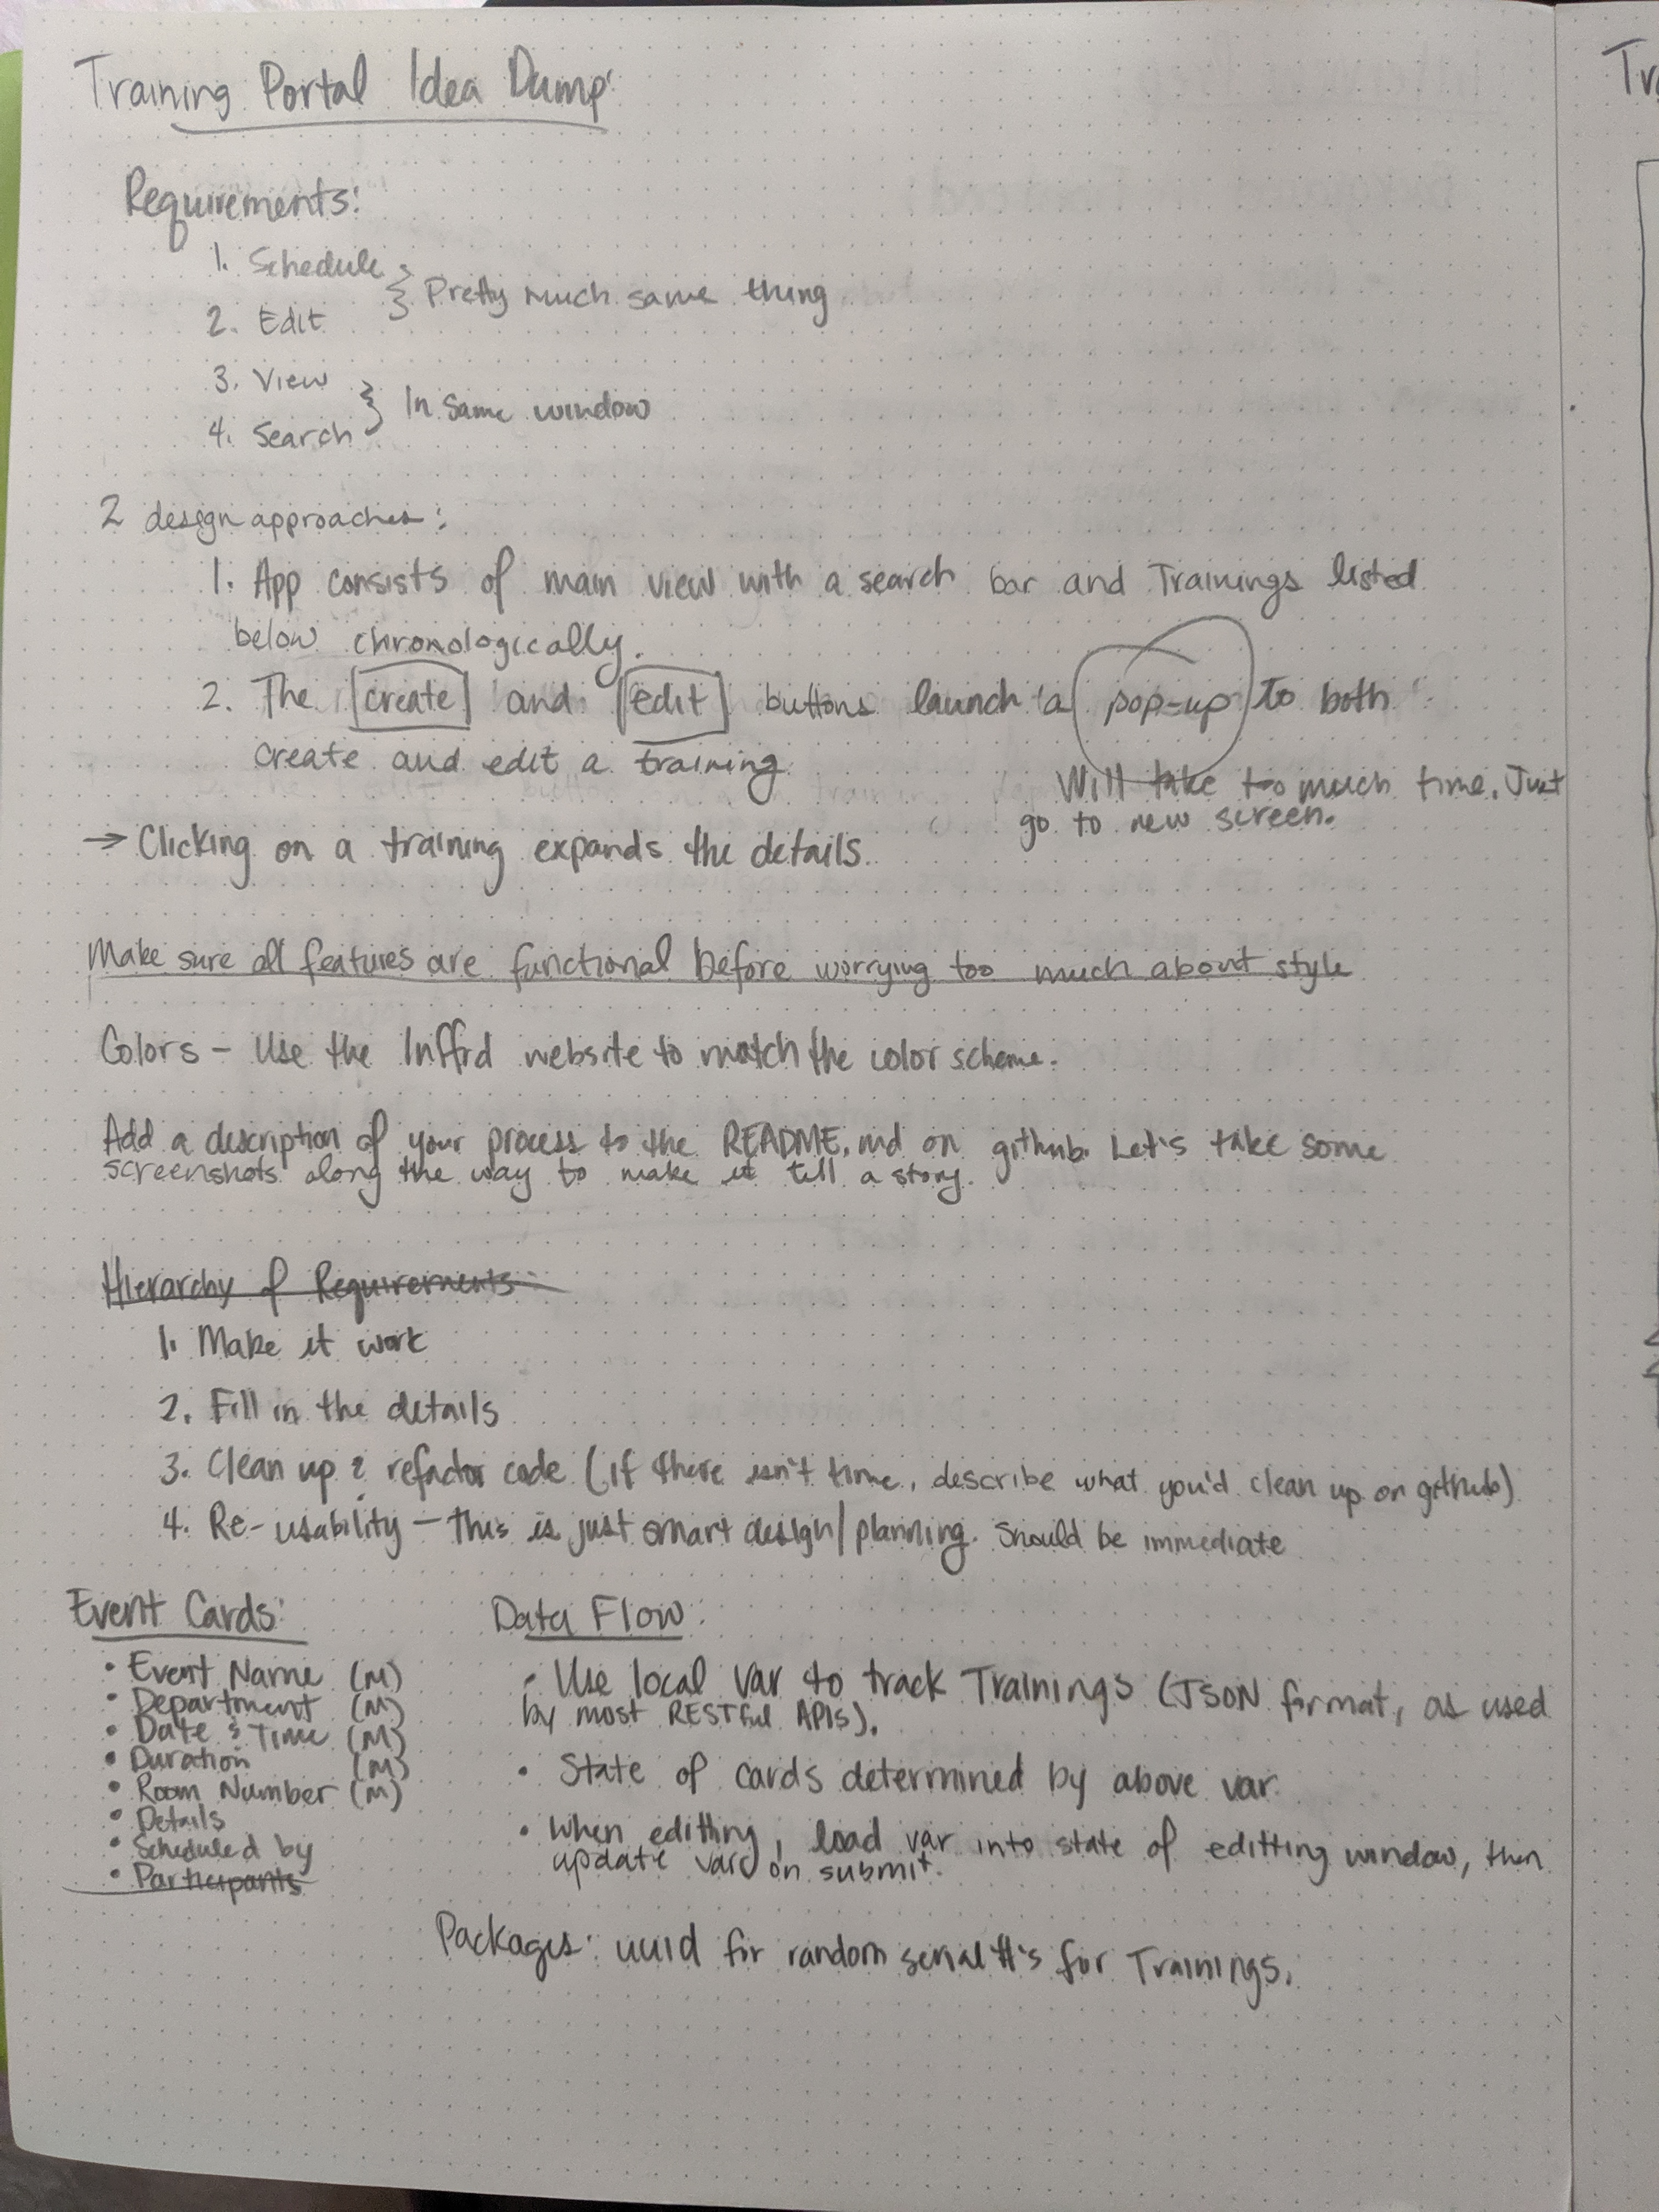 Training Portal Idea Dump:
Requirements:
1. Schedule
2. Edit
} Pretty much same thing
3. View
4. Search
} In same window
2 design approaches:
1. App consists of main view with a search bar and Trainings listed
below chronologically.
2. The [create] and [edit] buttons launch a pop-up to both
create and edit a training
Will take to much time. Just
go to new screen.
→ Clicking on a training expands the details.
Make sure all features are functional before worrying too much about style
Colors - Use the Inffrd website to match the color scheme.
Add a description of your process to the README.md on github. Let's take some
screenshots along the way to make it tell a story.
Hierarchy of Requirements
1. Make it work
2. Fill in the details
3. Clean up & refactor code (if there isn't time, describe what you'd clean up on github)
4. Re-usability - this is just smart design/planning. Should be immediate
Event Cards:
• Event Name (M)
• Department (M)
• Date & Time (M)
• Duration (M)
• Room Number (M)
• Details
• Scheduled by
• Participants
Data Flow:
• Use local var to track Trainings (JSON format, as used
by most RESTful APIs).
• State of cards determined by above var.
• When editting, load var into state of editting window, then
update var on submit.
Packages: uuid for random serial #'s for Trainings.
Tr